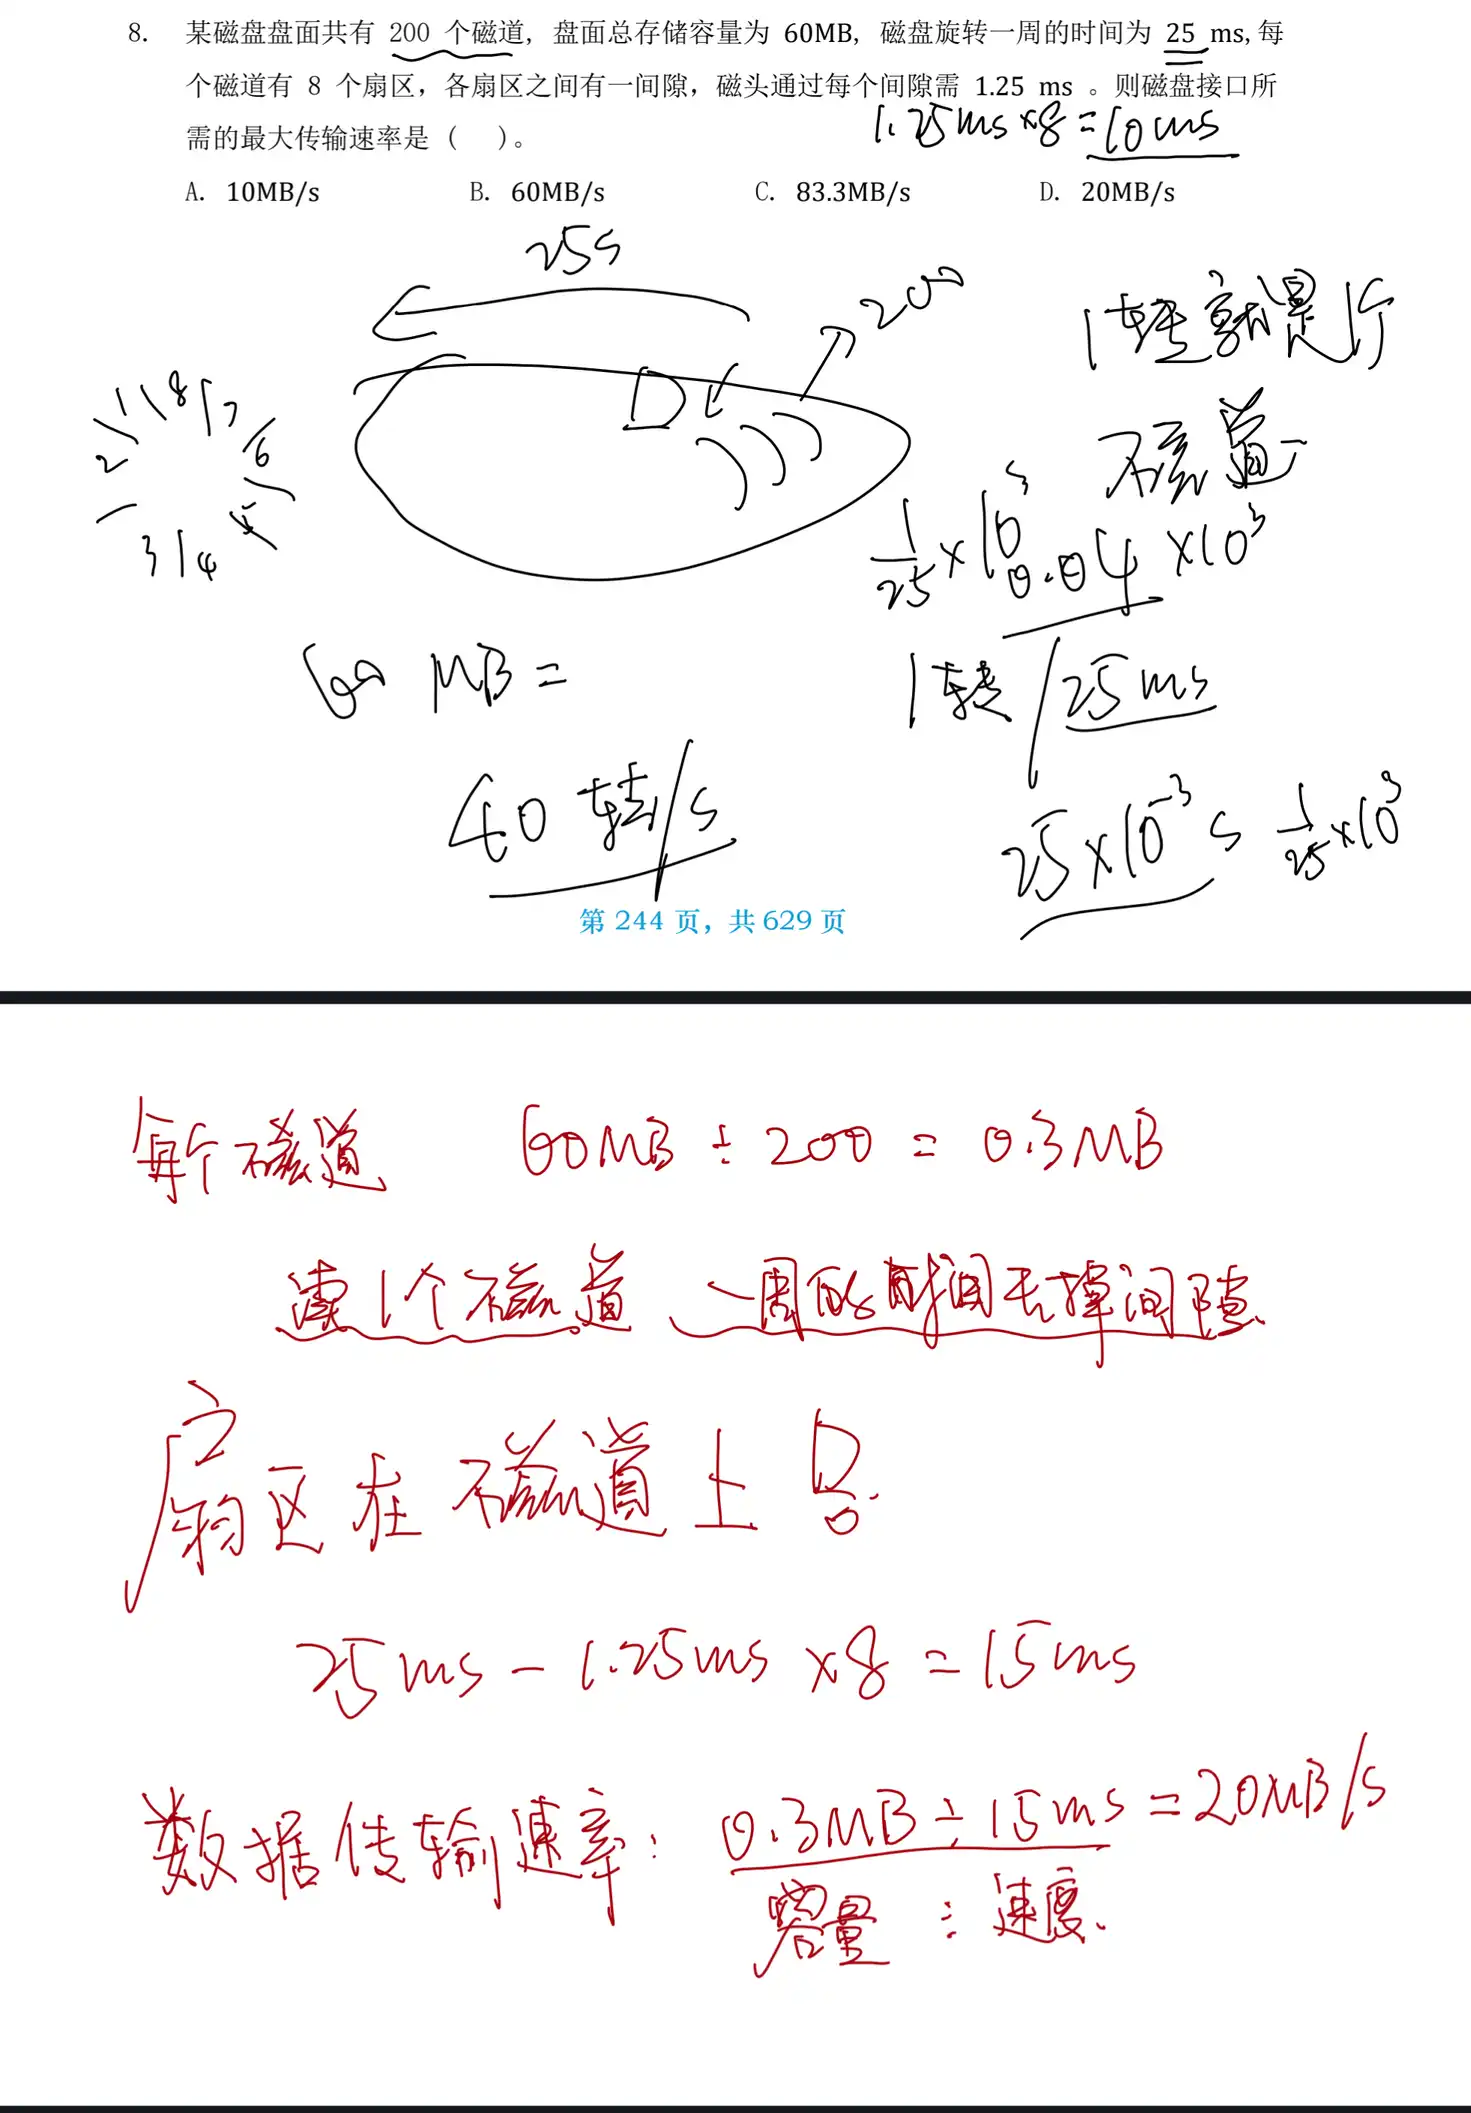 8. 某磁盘盘面共有 200 个磁道，盘面总存储容量为 60MB，磁盘旋转一周的时间为 25 ms,每
个磁道有 8 个扇区，各扇区之间有一间隙，磁头通过每个间隙需 1.25 ms 。则磁盘接口所
需的最大传输速率是（ ）。
1.25ms×8=10ms
A. 10MB/s B. 60MB/s C. 83.3MB/s D. 20MB/s
25s
200
1转就是1个
磁道
1 8 7
2 6
3 4 5
1/25×10³ 0.04×10³
60 MB=
1转/25ms
40转/s
25×10⁻³s 1/25×10³
第 244 页，共 629 页
每个磁道 60MB÷200=0.3MB
读1个磁道 一周的时间去掉间隙.
扇区在磁道上
25ms-1.25ms×8=15ms
数据传输速率: 0.3MB÷15ms=20MB/s
容量÷速度.